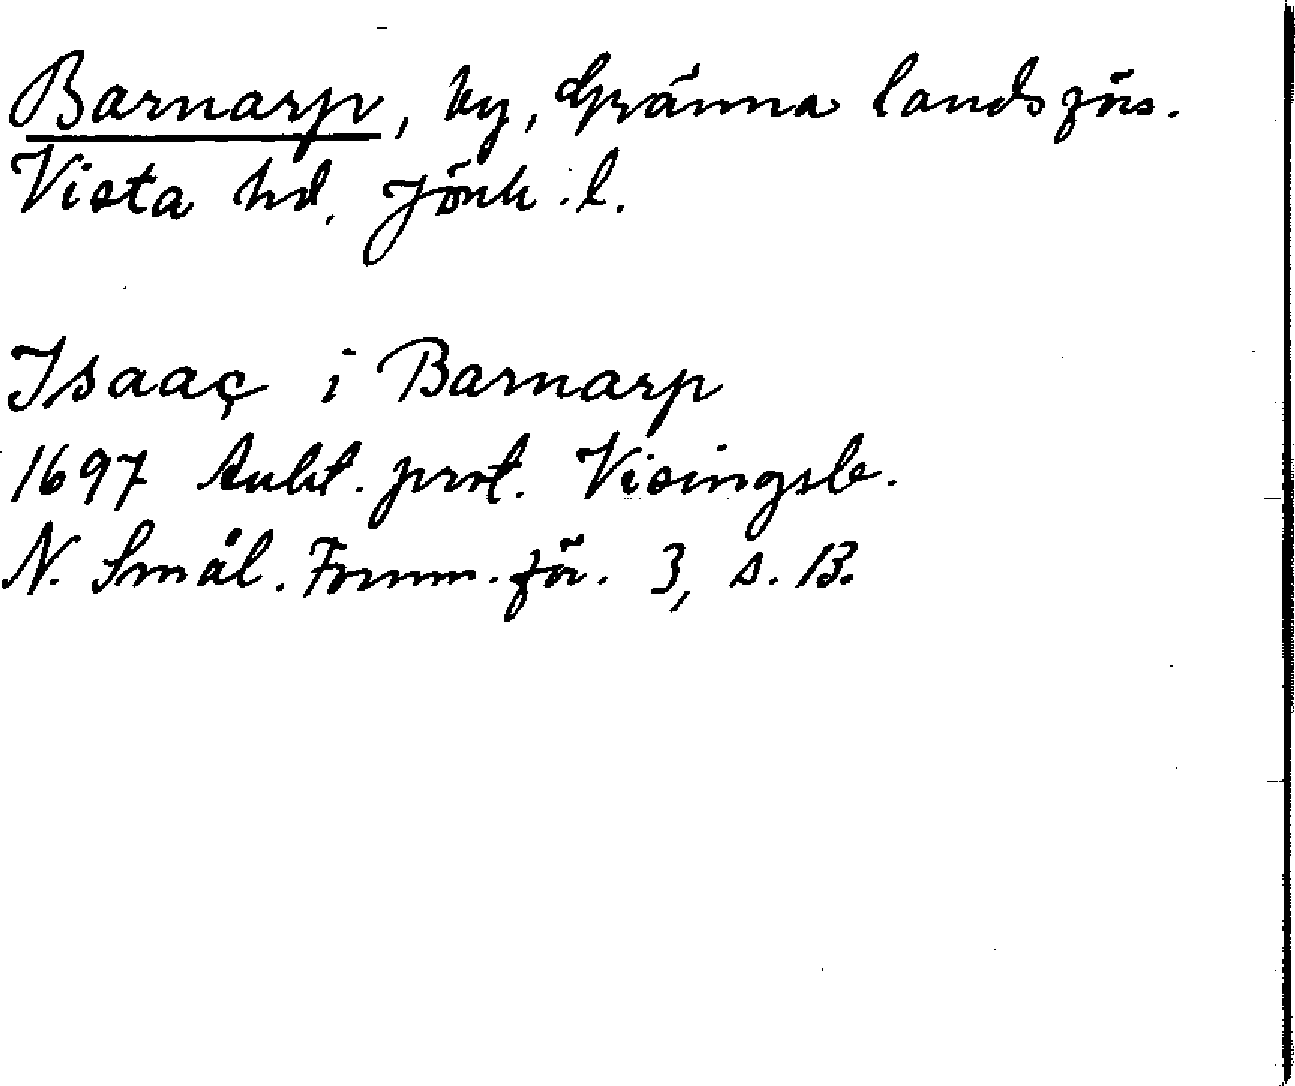 Barnarp, by, Gränna landsförs.
Vista hd. Jönk. l.
Isaac i Barnarp
1697 Aukt. prot. Visingsb.
N. Smål. Fornm. för. 3, s. 13.